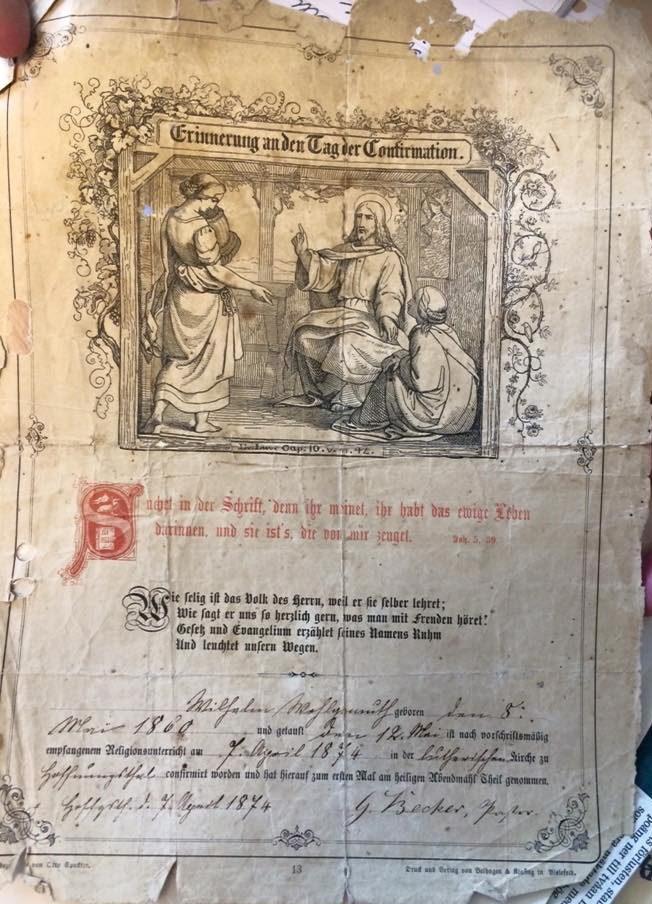 Erinnerung an den Tag der Confirmation.
Ev. Luc. Cap. 10. v. 42.
Suchet in der Schrift, denn ihr meinet, ihr habt das ewige Leben
darinnen, und sie ist's, die von mir zeuget. Joh. 5, 39.
Wie selig ist das Volk des Herrn, weil er sie selber lehret;
Wie sagt er uns so herzlich gern, was man mit Freuden höret!
Gesetz und Evangelium erzählet seines Namens Ruhm
Und leuchtet unsern Wegen.
Wilhelm Wohlgemuth geboren den 8.
Mai 1860 und getauft den 12. Mai ist nach vorschriftsmäßig
empfangenem Religionsunterricht am 7. April 1874 in der lutherischen Kirche zu
Hoffnungsthal confirmirt worden und hat hierauf zum ersten Mal am heiligen Abendmahl Theil genommen.
d. 7. April 1874 G. Becker, Pastor.
von Otto Speckter. 13 Druck und Verlag von Velhagen & Klasing in Bielefeld.